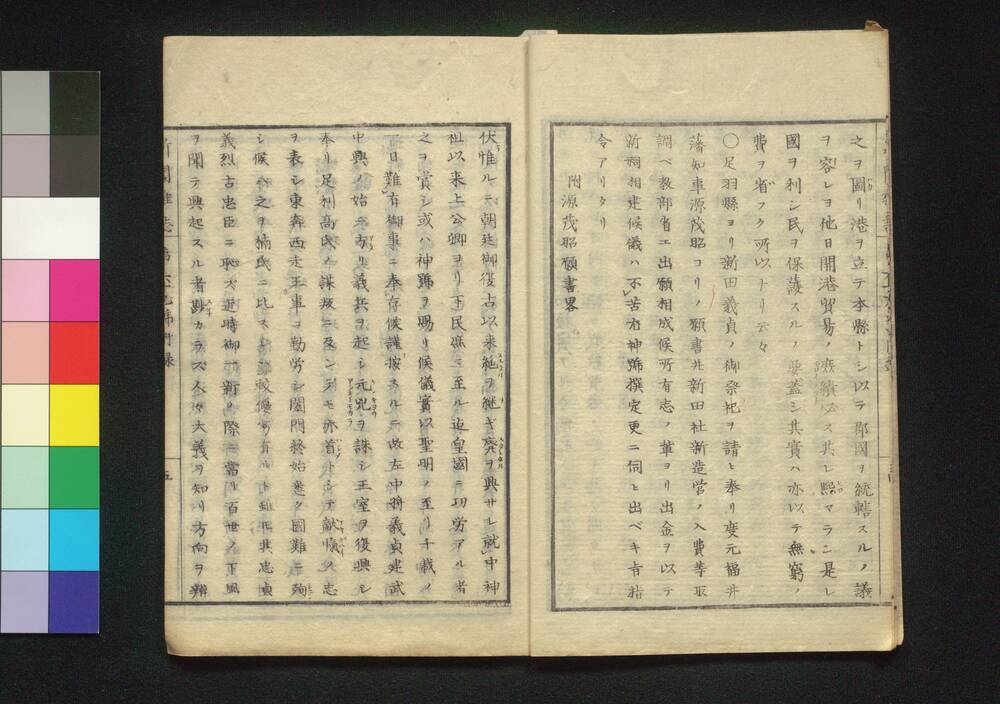 之ヲ圖リ港ヲ立テ本縣トシ以テ郡國ヲ統轄スルノ議
ヲ容レヨ他日開港貿易ノ 其レ熙マラン是レ
國ヲ利シ民ヲ保護スルノ 蓋シ其實ハ亦以テ無窮ノ
費ヲ省ク所以ナリ云々
〇足羽縣ヨリ新田義貞ノ御祭祀ヲ請ヒ奉リ度元福井
藩知事源茂昭ヨリノ願書并新田社新造営ノ入費等取
調ベ教部省エ出願相成候所有志ノ輩ヨリ出金ヲ以テ
新祠相建候儀ハ不苦尤神號撰定更ニ伺ヒ出ベキ旨指
令アリタリ
附源茂昭願書畧
伏惟ルニ朝廷御復古以来絶ヲ継ギ廃ヲ興サレ就中神
祖以来上公卿ヨリ下民庶ニ至ル迄皇國ニ功労アル者
之ヲ賞シ或ハ神號ヲ賜リ候儀實以聖明ノ至リ千載ノ
一日難有御事ニ奉存候謹按スルニ故左中将義貞建武
中興ノ始ニ方リ義兵ヲ起シ元兇ヲ誅シ王室ヲ復興シ
奉リ足利高氏ノ謀叛ニ及ンデモ亦首トシテ敵愾ノ忠
ヲ表シ東奔西走王事ニ勤労シ闔門終始悉ク國難ニ殉
シ候ヘバ之ヲ楠氏ニ比スニ較優劣有ルト雖モ其忠貞
義烈古忠臣ニ恥ズ近時御一新ノ際ニ當リ百世ノ下風
ヲ聞テ興起スル者尠カラズ人々大義ヲ知リ方向ヲ辨